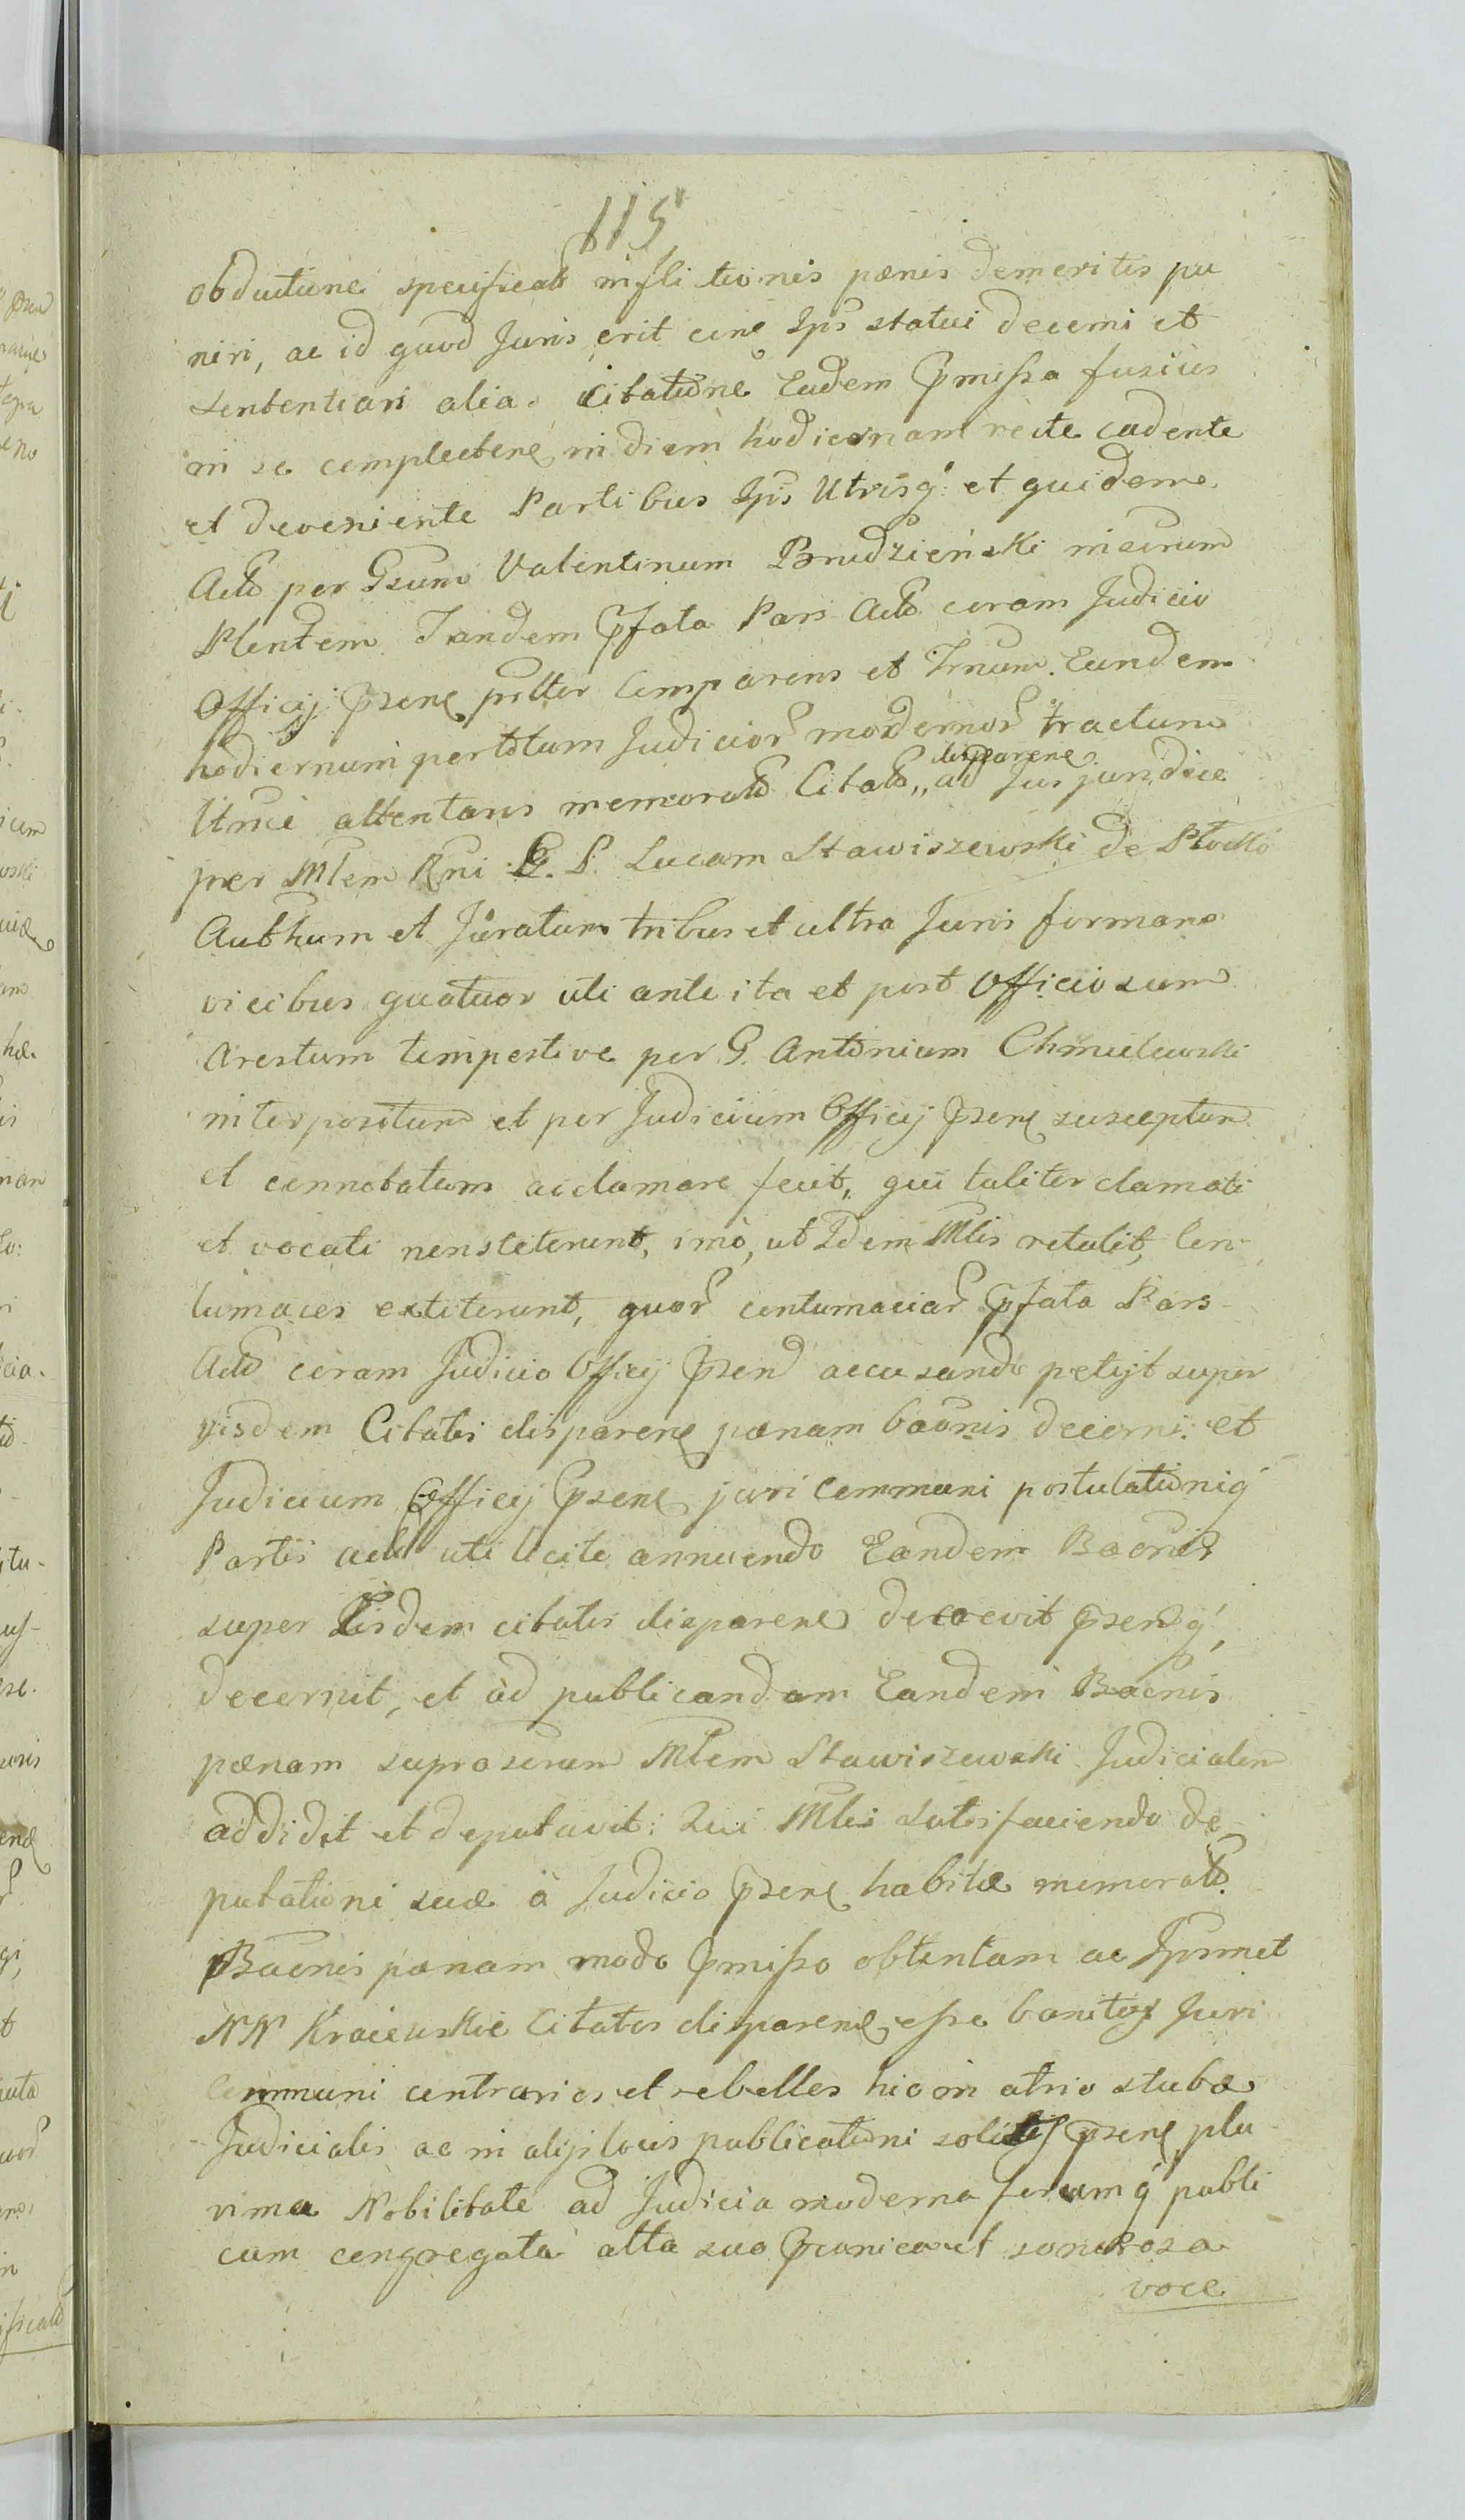 115
obductione specificat inflictionis pœnis demeritis pu
niri, ac id quod Juris erit circa Ipsos statui decerni et
sententiari alia. Citatione Eadem pmissa fusius
in se complecten in diem hodiernam recte cadente
et deveniente Partibus Ipsis Utrisq: et quidem
Acto per Gsum Valentinum Brudzieński nisirum
Plentem. Tandem pfata Pars Acto coram Judicio
Officij psen pstter Comparens et Trnum. Eundem
hodiernum per totum Judicior modernor tractum
disparene
Utrnie attentans memorato Citato,, ad Jus juridice
per Mlem Rni G. P. Lucam Stawiszewski de Płocko
Authum et Juratum tribus et ultra Juris formam
vicibus quatuor uti ante ita et post Officiosum
Arestum tempestive per G. Antonium Chmielewski
interpositum et per Judicium Officij psen susceptum
et connotatum acclamare fecit, qui taliter clamati
et vocati non steterunt, imò, ut Idem Mlis retulit, Con-
tumaces extiterunt, quor contumaciar pfata Pars
Acto coram Judicio Officij psen accusando petijt super
yisdem Citatis disparene pœnam baonis decerni. et
Judicium Officij psene juri Communi postulationiq
Partis acto uti licite annuendo Eandem Baonis
super Eisdem citatis disparene decrevit psenq,
decernit, et ad publicandam Eandem Baonis
pœnam suprascrum Mlem Stawiszewski Judicialem
addidit et deputavit: Qui Mlis Satisfaciendo de
putationi suæ à Judicio psene habitæ memorato
Baonis pœnam modo pmisso obtentam ac Ipsmet
NN Kraiewskie Citatos disparene, esse banitos Juri
Communi contrarios et rebelles hic in atrio stubæ
Judicialis ac in alijs locis publicationi solitis psene plu
rima Nobilitate ad Judicia moderna forumq publi
cum congregata alta sua pconica et sonorosa
voce